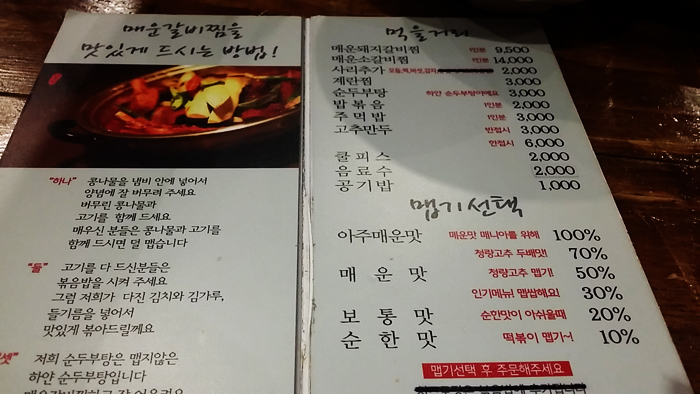 매운갈비찜을
맛있게 드시는 방법!
"하나" 콩나물을 냄비 안에 넣어서
양념에 잘 버무려 주세요
버무린 콩나물과
고기를 함께 드세요
매우신 분들은 콩나물과 고기를
함께 드시면 덜 맵습니다
"둘" 고기를 다 드신분들은
볶음밥을 시켜 주세요
그럼 저희가 다진 김치와 김가루,
들기름을 넣어서
맛있게 볶아드릴께요
셋" 저희 순두부탕은 맵지않은
하얀 순두부탕입니다
먹을거리
매운돼지갈비찜 1인분 9,500
매운소갈비찜 1인분 14,000
사리추가 2,000
계란찜 3,000
순두부탕 하얀 순두부탕이예요 3,000
밥볶음 1인분 2,000
주먹밥 1인분 3,000
고추만두 반접시 3,000
한접시 6,000
쿨피스 2,000
음료수 2,000
공기밥 1,000
맵기선택
아주매운맛 매운맛 매니아를 위해 100%
청량고추 두배맛! 70%
매운맛 청량고추 맵기! 50%
인기메뉴! 맵쌉해요! 30%
보통맛 순한맛이 아쉬울때 20%
순한맛 떡볶이 맵기~! 10%
맵기선택 후 주문해주세요